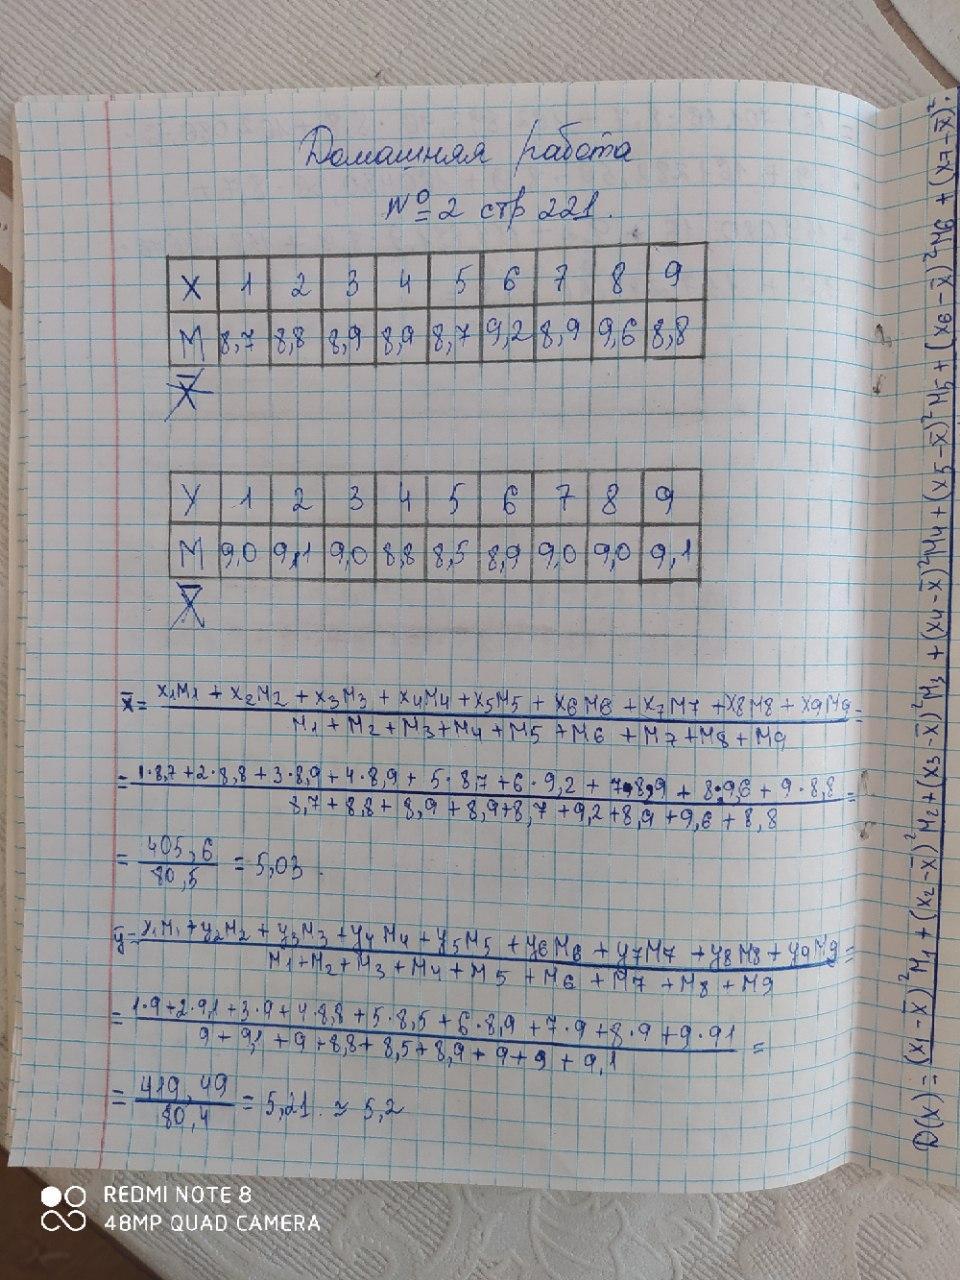 Домашняя работа
№ 2 стр 221.
X 1 2 3 4 5 6 7 8 9
M 8,7 8,8 8,9 8,9 8,7 9,2 8,9 9,6 8,8
X̅
У 1 2 3 4 5 6 7 8 9
M 9,0 9,1 9,0 8,8 8,5 8,9 9,0 9,0 9,1
X̅
x̅ = x₁M₁ + x₂M₂ + x₃M₃ + x₄M₄ + x₅M₅ + x₆M₆ + x₇M₇ + x₈M₈ + x₉M₉ =
M₁ + M₂ + M₃ + M₄ + M₅ + M₆ + M₇ + M₈ + M₉
= 1·8,7 + 2·8,8 + 3·8,9 + 4·8,9 + 5·8,7 + 6·9,2 + 7·8,9 + 8·9,6 + 9·8,8 =
8,7 + 8,8 + 8,9 + 8,9 + 8,7 + 9,2 + 8,9 + 9,6 + 8,8
= 405,6 / 80,5 = 5,03.
y̅ = x₁M₁ + y₂M₂ + y₃M₃ + y₄M₄ + y₅M₅ + y₆M₆ + y₇M₇ + y₈M₈ + y₉M₉ =
M₁ + M₂ + M₃ + M₄ + M₅ + M₆ + M₇ + M₈ + M₉
= 1·9 + 2·9,1 + 3·9 + 4·8,8 + 5·8,5 + 6·8,9 + 7·9 + 8·9 + 9·91 =
9 + 9,1 + 9 + 8,8 + 8,5 + 8,9 + 9 + 9 + 9,1
= 419,49 / 80,4 = 5,21 ≈ 5,2
D(x) = (x₁ - x̅)²M₁ + (x₂ - x̅)²M₂ + (x₃ - x̅)²M₃ + (x₄ - x̅)²M₄ + (x₅ - x̅)²M₅ + (x₆ - x̅)²M₆ + (x₇ - x̅)²
REDMI NOTE 8
48MP QUAD CAMERA